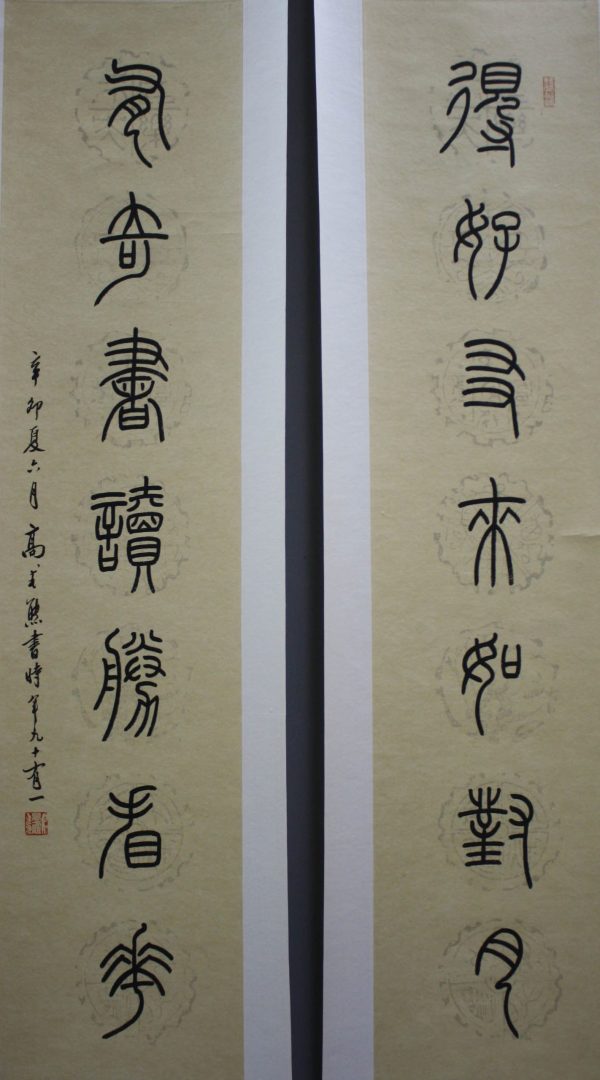 得好友來如對月
有奇書讀勝看花
辛卯夏六月高式熊書時年九十有一